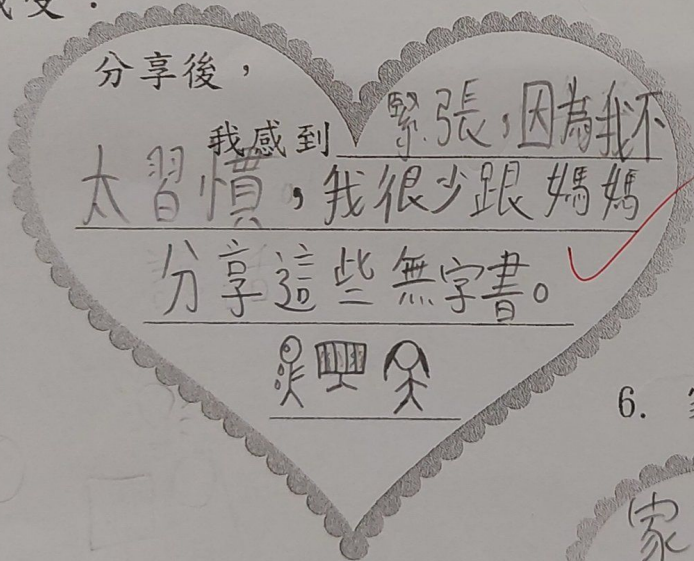 分享後，
我感到緊張，因為我不
太習慣，我很少跟媽媽
分享這些無字書。
6.
家